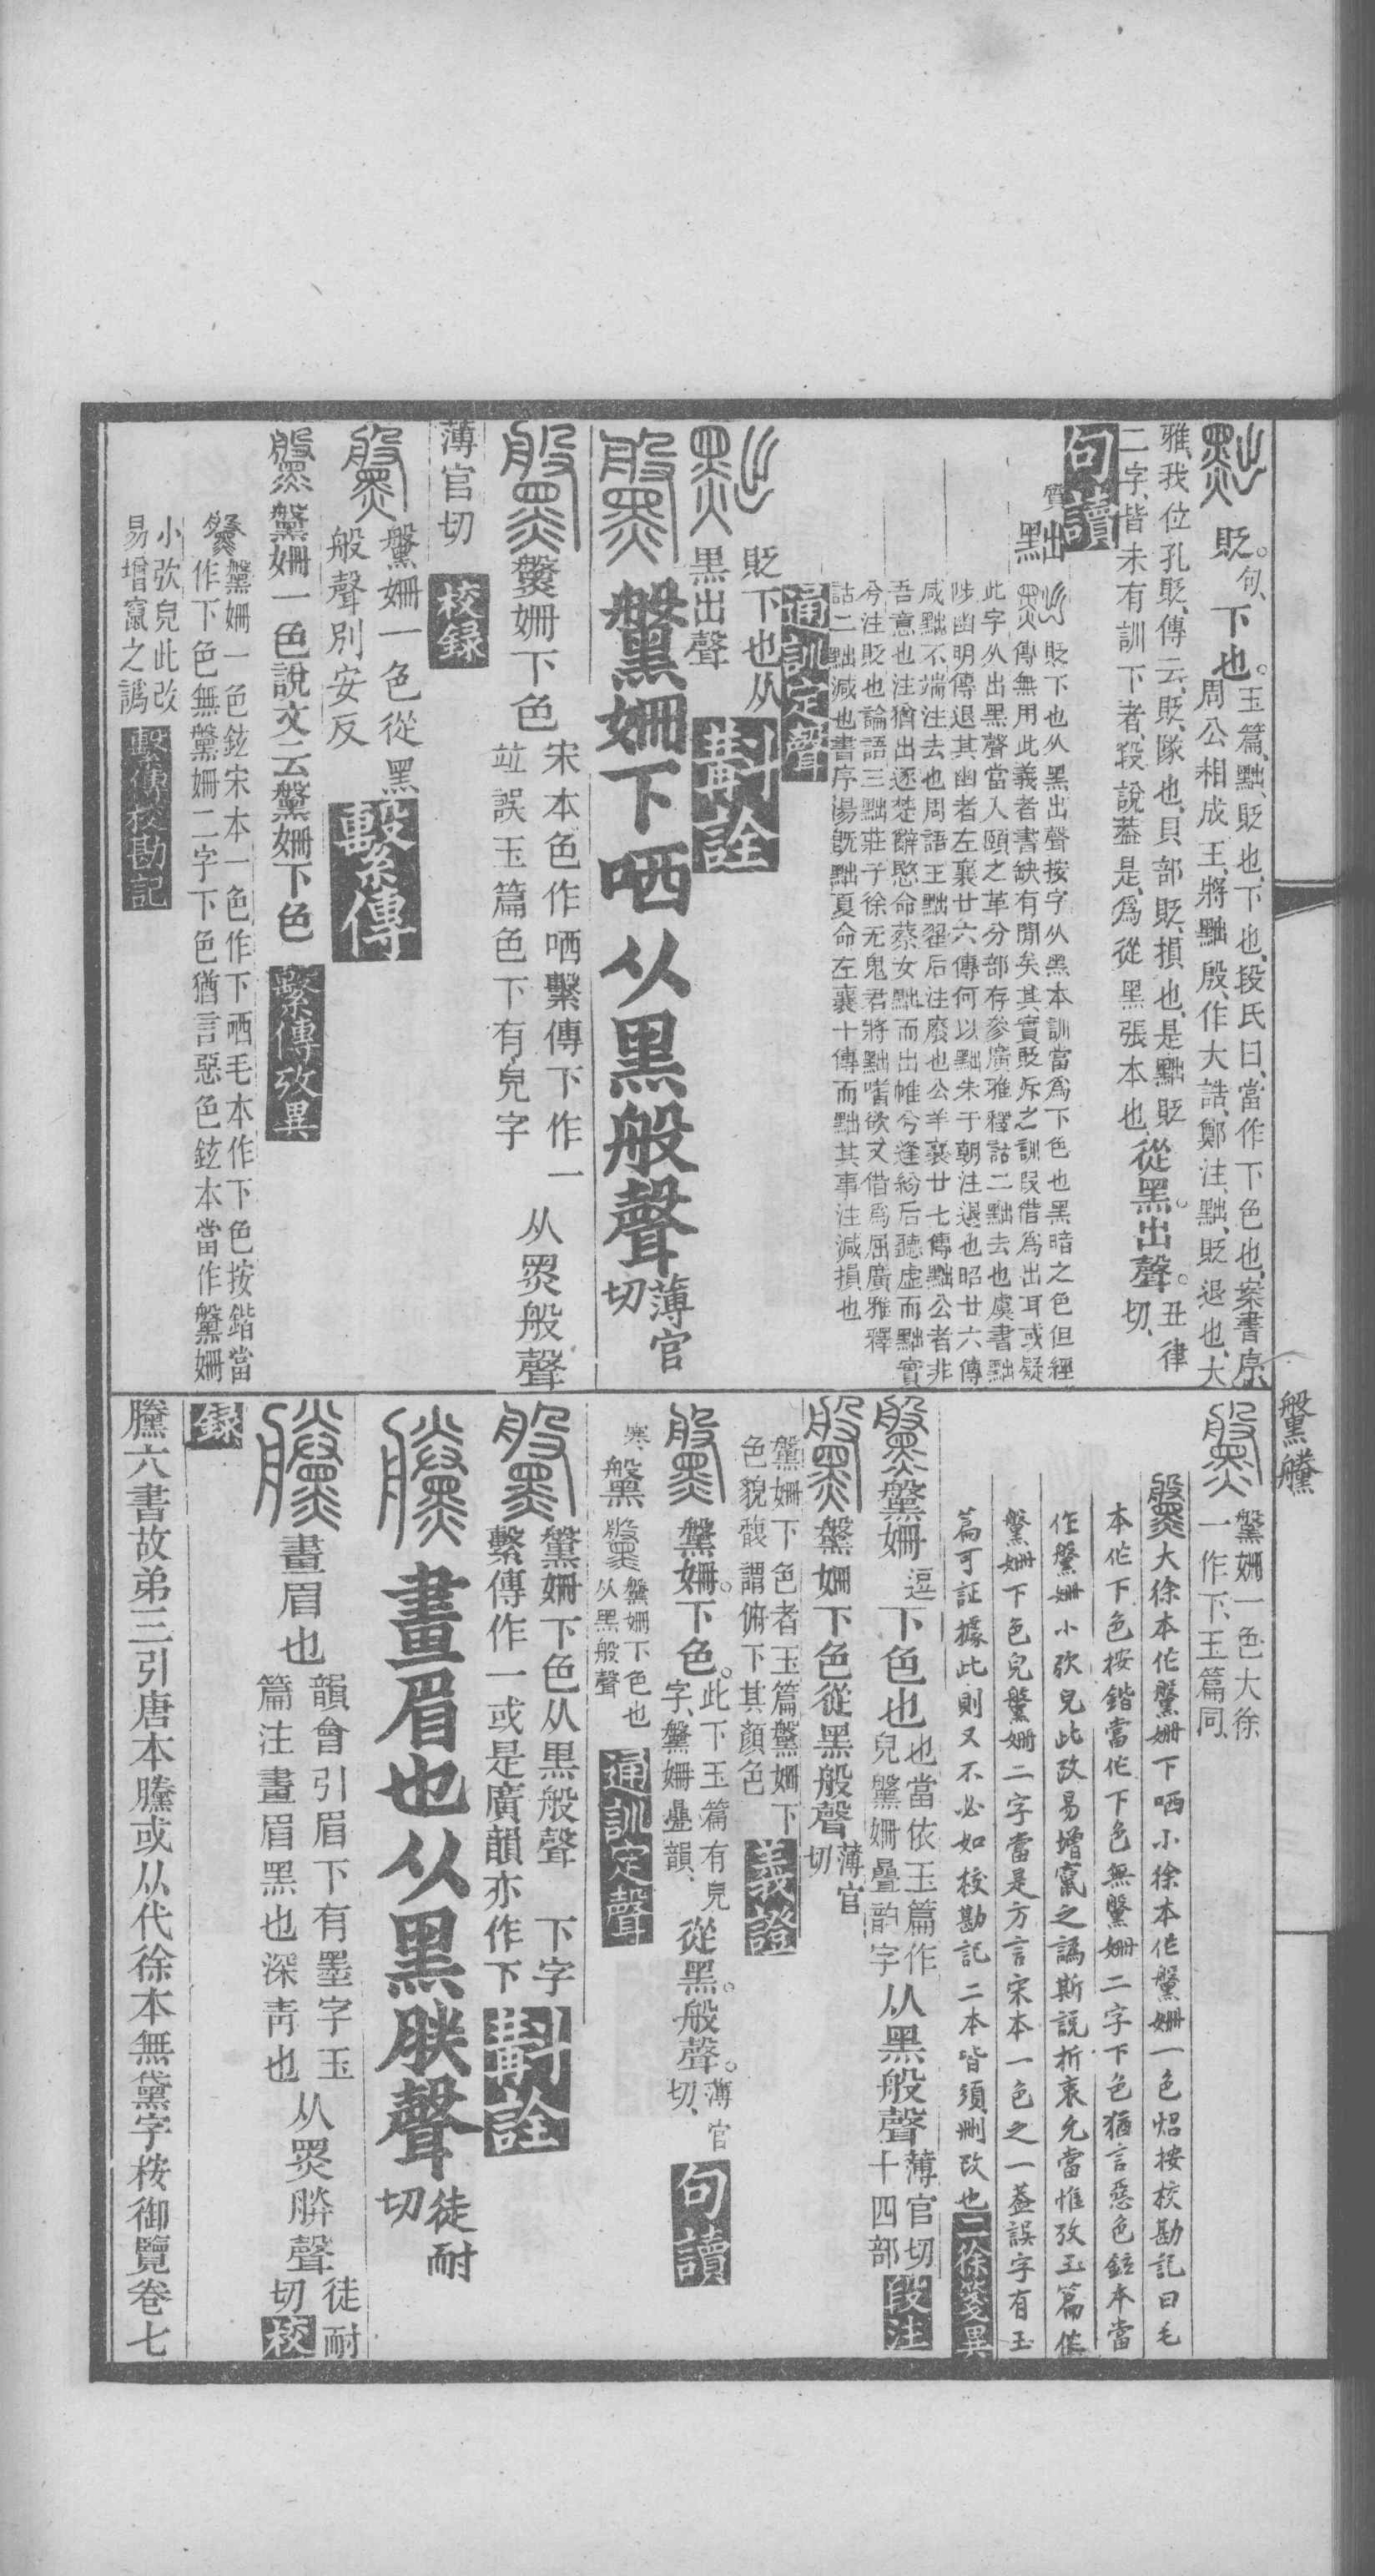 黜 貶。句、下也。玉篇、黜、貶也、下也、段氏曰、當作下色也、案書序、
周公相成王、將黜殷、作大誥、鄭注、黜、貶退也、大
雅、我位孔貶、傳云、貶、隊也、貝部、貶、損也、是黜貶
二字、皆未有訓下者、段說葢是、爲從黑張本也、從黑。出聲。丑律切、
句讀
黜 貶下也从黑出聲按字从黑本訓當爲下色也黑暗之色但經
傳無用此義者書缺有閒矣其實貶斥之訓叚借爲出耳或疑
此字从出黑聲當人頤之革分部存參廣雅釋詁二黜去也虞書黜
陟幽明傳退其幽者左襄廿六傳何以黜朱于朝注退也昭廿六傳
咸黜不端注去也周語王黜翟后注廢也公羊襄廿七傳黜公者非
吾意也注猶出逐楚辭愍命蔡女黜而出帷兮逢紛后聽虛而黜實
兮注貶也論語三黜莊子徐无鬼君將黜嗜欲又借爲屈廣雅釋
詁二黜減也書序湯旣黜夏命左襄十傳而黜其事注減損也
通訓定聲
黜 貶下也从
黑出聲
斠詮
䰉 䰉姍下哂从黑般聲薄官切
䰉 䰉姍下色
宋本色作哂繫傳下作一
竝誤玉篇色下有皃字
从黑般聲
薄官切
校録
䰉 䰉姍一色從黑
般聲別安反
繫傳
䰉 䰉姍一色說文云䰉姍下色
繫傳攷異
䰉 䰉姍一色鉉宋本一色作下哂毛本作下色按鍇當
作下色無䰉姍二字下色猶言惡色鉉本當作䰉姍
小㰟皃此改
易增竄之譌
繫傳校勘記
䰉 䰉姍一色大徐
一作下、玉篇同、
䰉大徐本作䰉姍下哂小徐本作䰉姍一色炤按校勘記曰毛
本作下色按鍇當作下色無䰉姍二字下色猶言惡色鉉本當
作䰉姍小㰟皃此改易增竄之譌斯說折衷允當惟攷玉篇作
䰉姍下色皃䰉姍二字當是方言宋本一色之一葢誤字有玉
篇可証據此則又不必如校勘記二本皆須刪改也
二徐箋異
䰉 䰉姍逗下色也
也當依玉篇作
皃䰉姍疊韵字
从黑般聲
薄官切
十四部
段注
䰉 䰉姍下色從黑般聲薄官切
䰉姍下色者玉篇䰉姍下
色貌馥謂俯下其顏色
義證
䰉 䰉姍。下色。
此下玉篇有皃
字、䰉姍曡韻、
從黑。般聲。薄官切、
句讀
䰉 䰉姍下色也
从黑般聲
通訓定聲
䰉 䰉姍下色从黑般聲 下字
繫傳作一或是廣韻亦作下
斠詮
黱 畫眉也从黑朕聲徒耐切
黱 畫眉也
韻會引眉下有墨字玉
篇注畫眉黑也深靑也
从黑朕聲
徒耐切
校
録
黱六書故弟三引唐本黱或从代徐本無黛字按御覽卷七
䰉黱